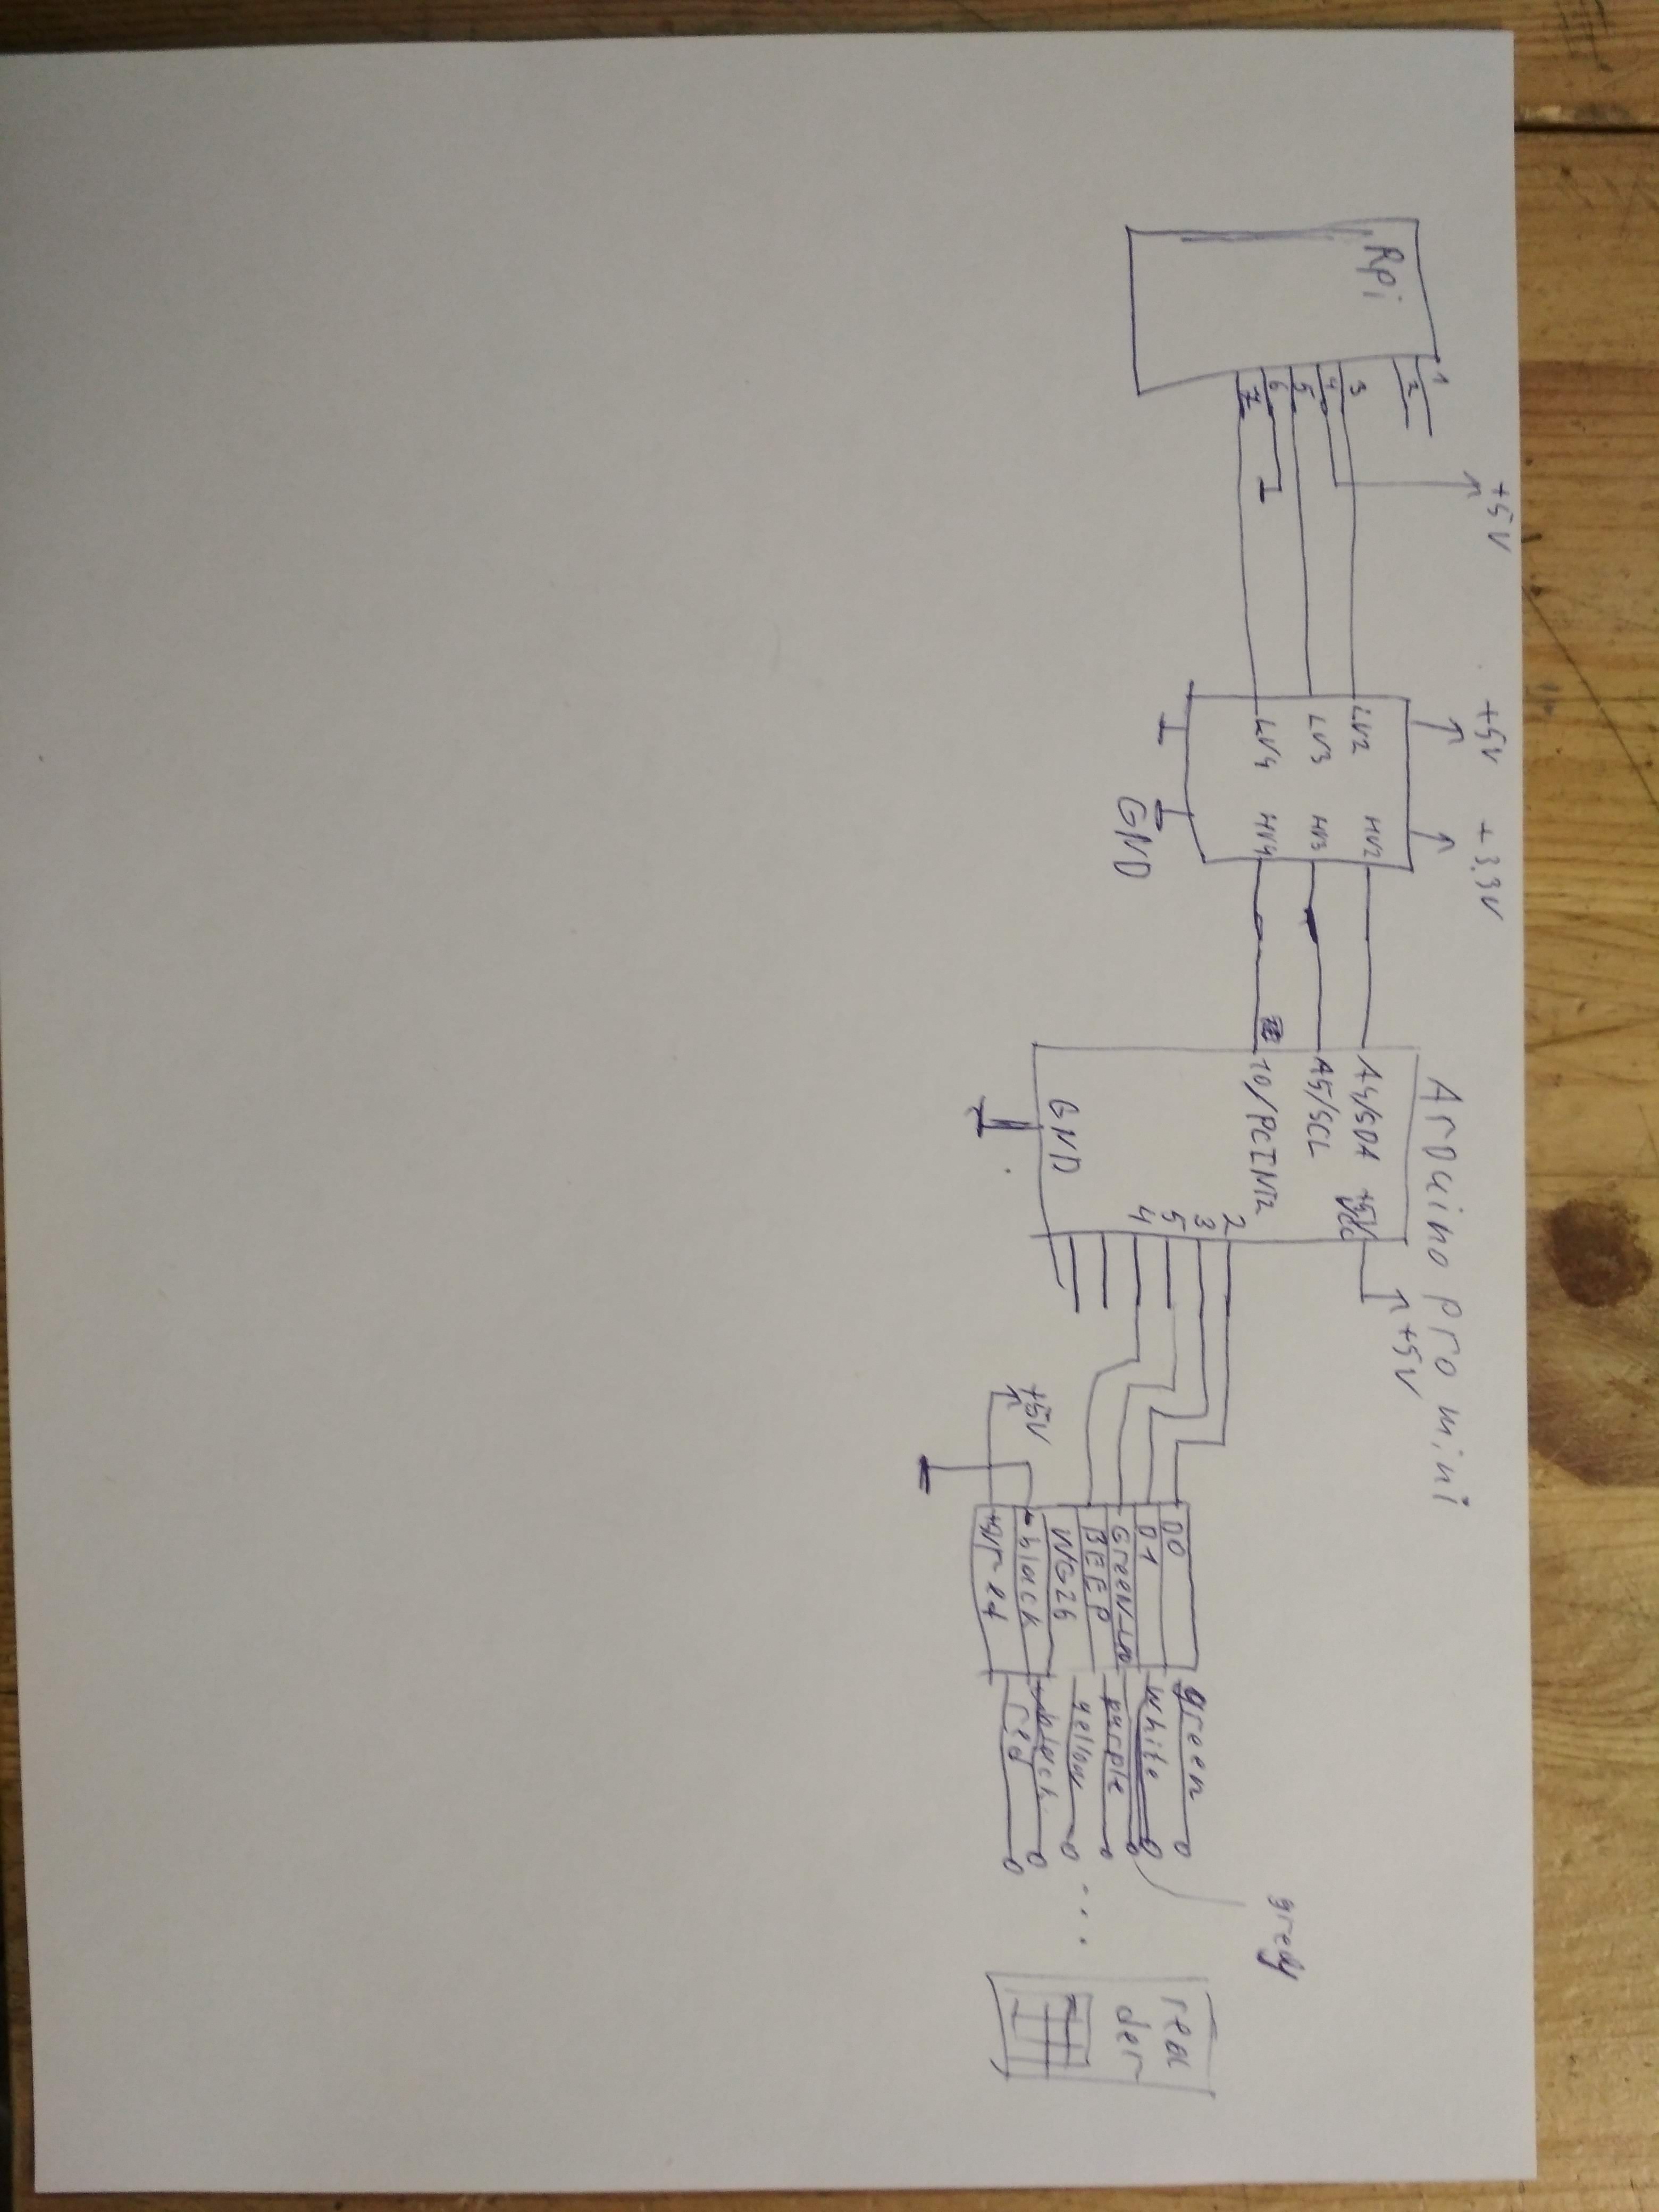 Rpi
1
2
3
4
5
6
7
+5V
+5V
+3.3V
LV2
LV3
LV4
HV2
HV3
HV4
GND
Arduino pro mini
A4/SDA
A5/SCL
10/PCINT2
+5V
VCC
GND
2
3
5
4
+5V
+5V
D0
D1
Green_LED
BEEP
WG26
black
+5V red
green
white
purple
yellow
black
red
grey
rea
der